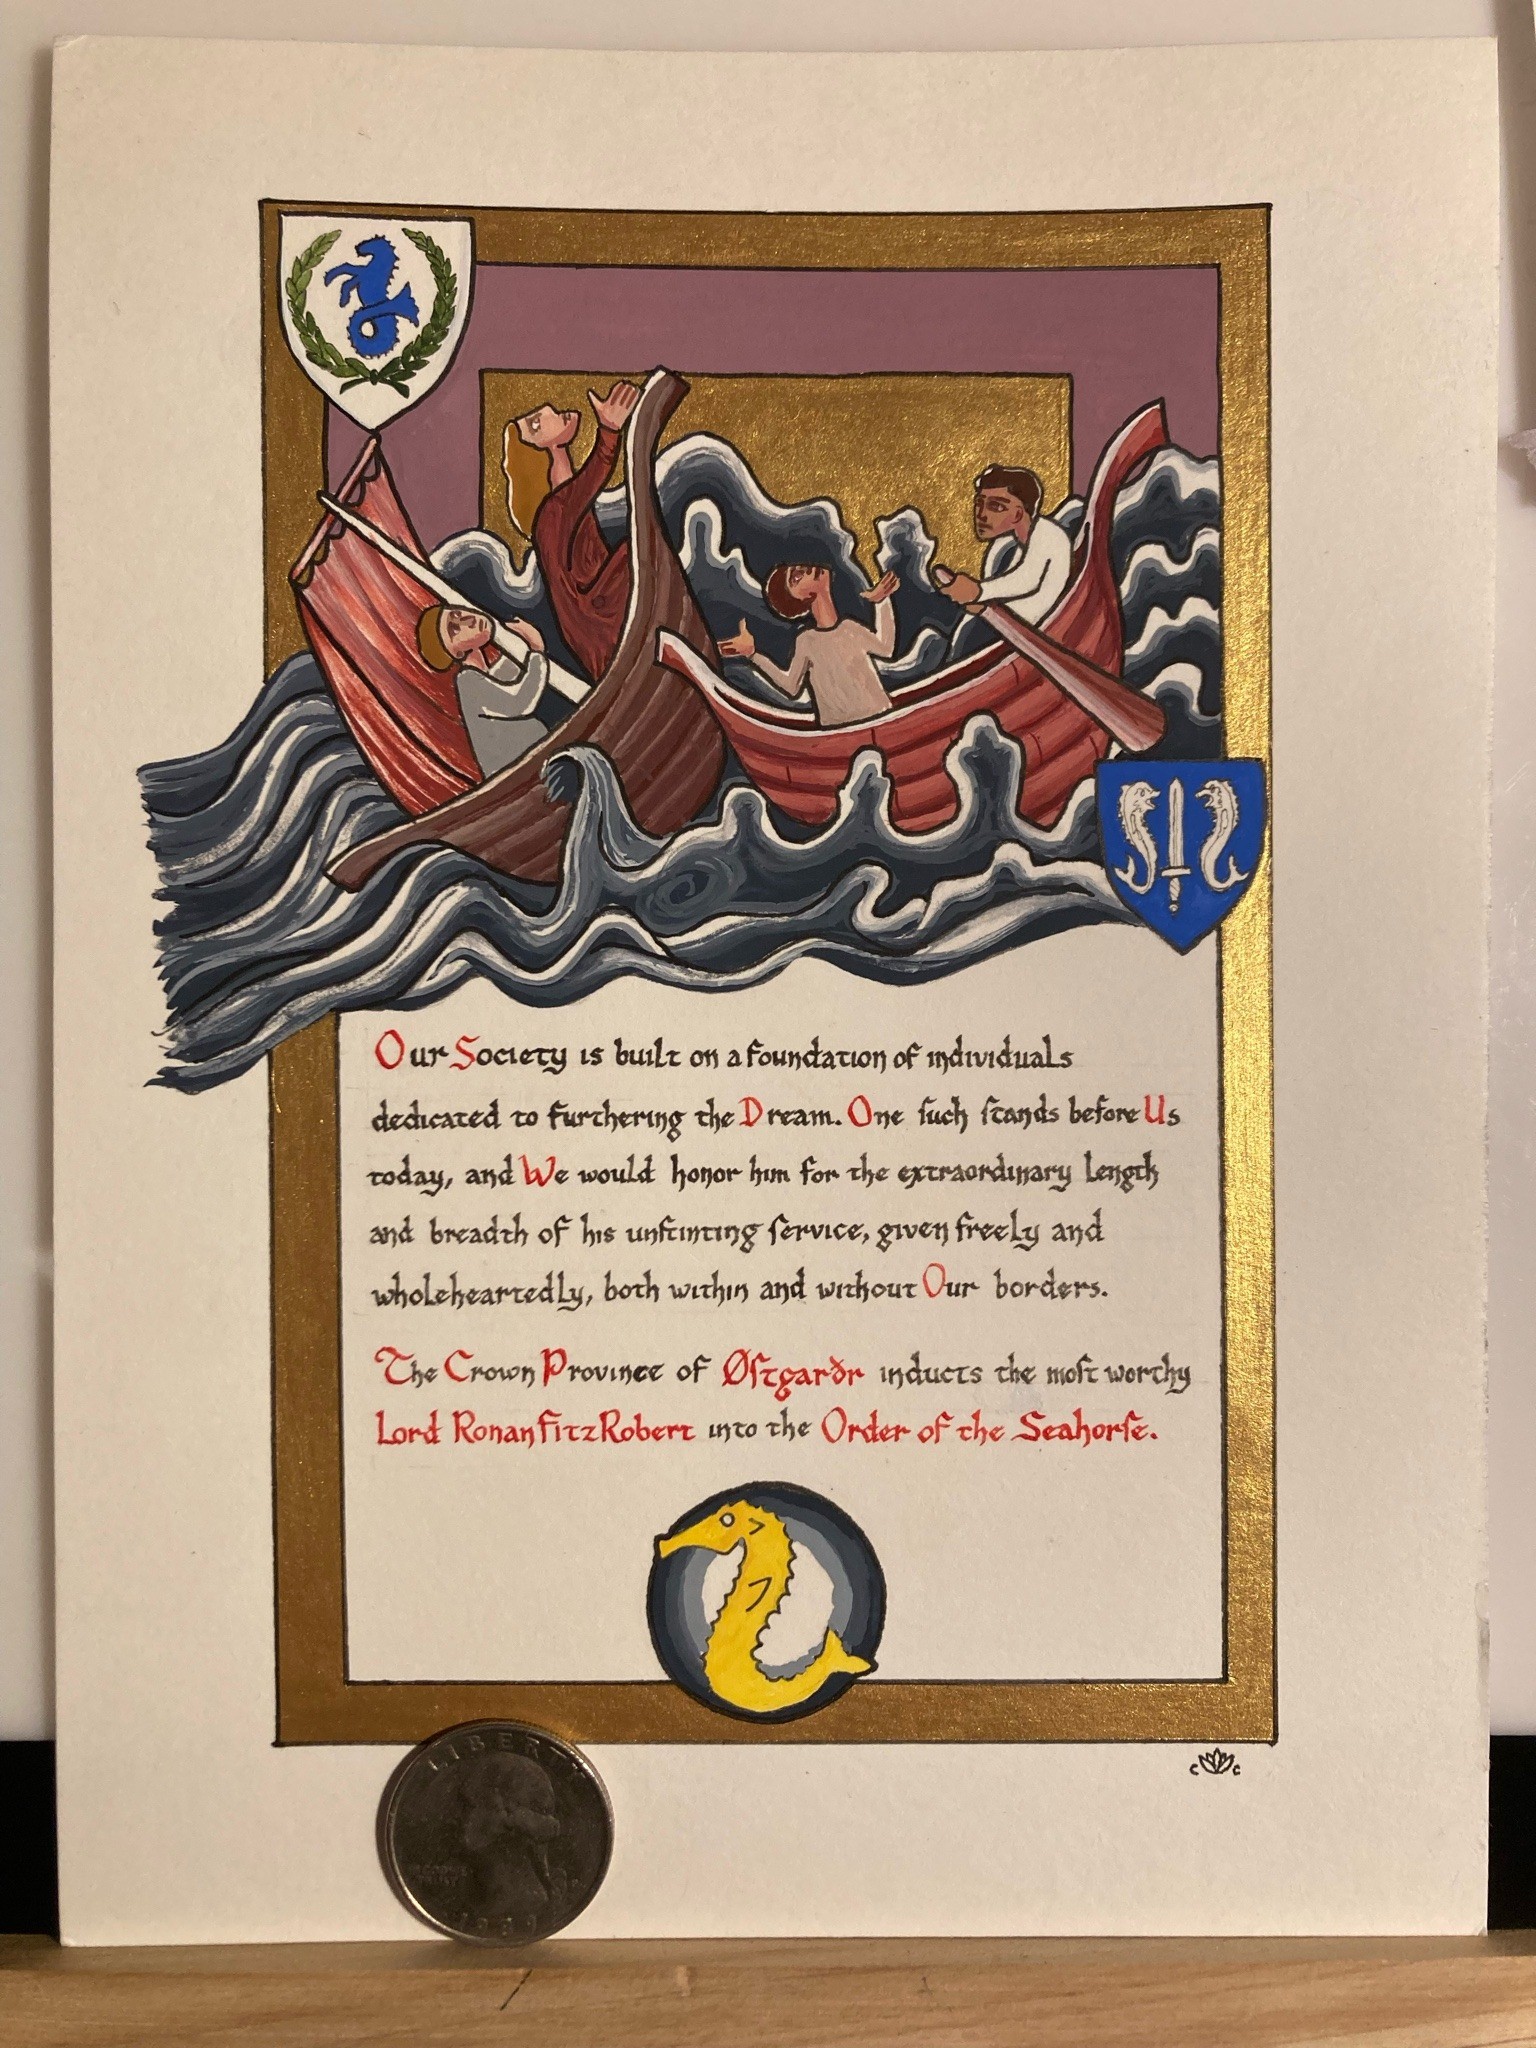 Our Society is built on a foundation of individuals
dedicated to furthering the Dream. One ſuch ſtands before Us
today, and We would honor him for the extraordinary length
and breadth of his unſtinting ſervice, given freely and
wholeheartedly, both within and without Our borders.
The Crown Province of Øſtgarðr inducts the moſt worthy
Lord Ronan FitzRobert into the Order of the Seahorſe.
c c
LIBERTY
IN GOD WE
TRUST